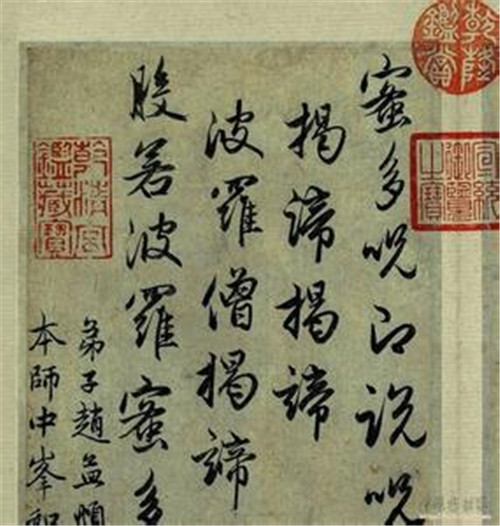 乾隆鑑賞
宣統御覽之寶
蜜多呪即說呪
揭諦揭諦
波羅僧揭諦
般若波羅蜜多
乾清宮鑑藏寶
弟子趙孟頫
本師中峯和